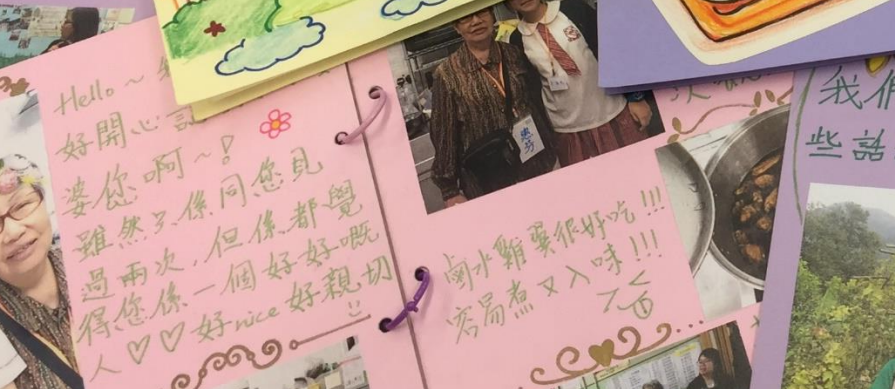 Hello~
好開心認
婆您啊~!
雖然只係同您見
過兩次,但係都覺
得您係一個好好嘅
人♡♡好nice 好親切
惠芳
鹵水雞翼很好吃!!!
容易煮又入味!!!
次
我們
些話